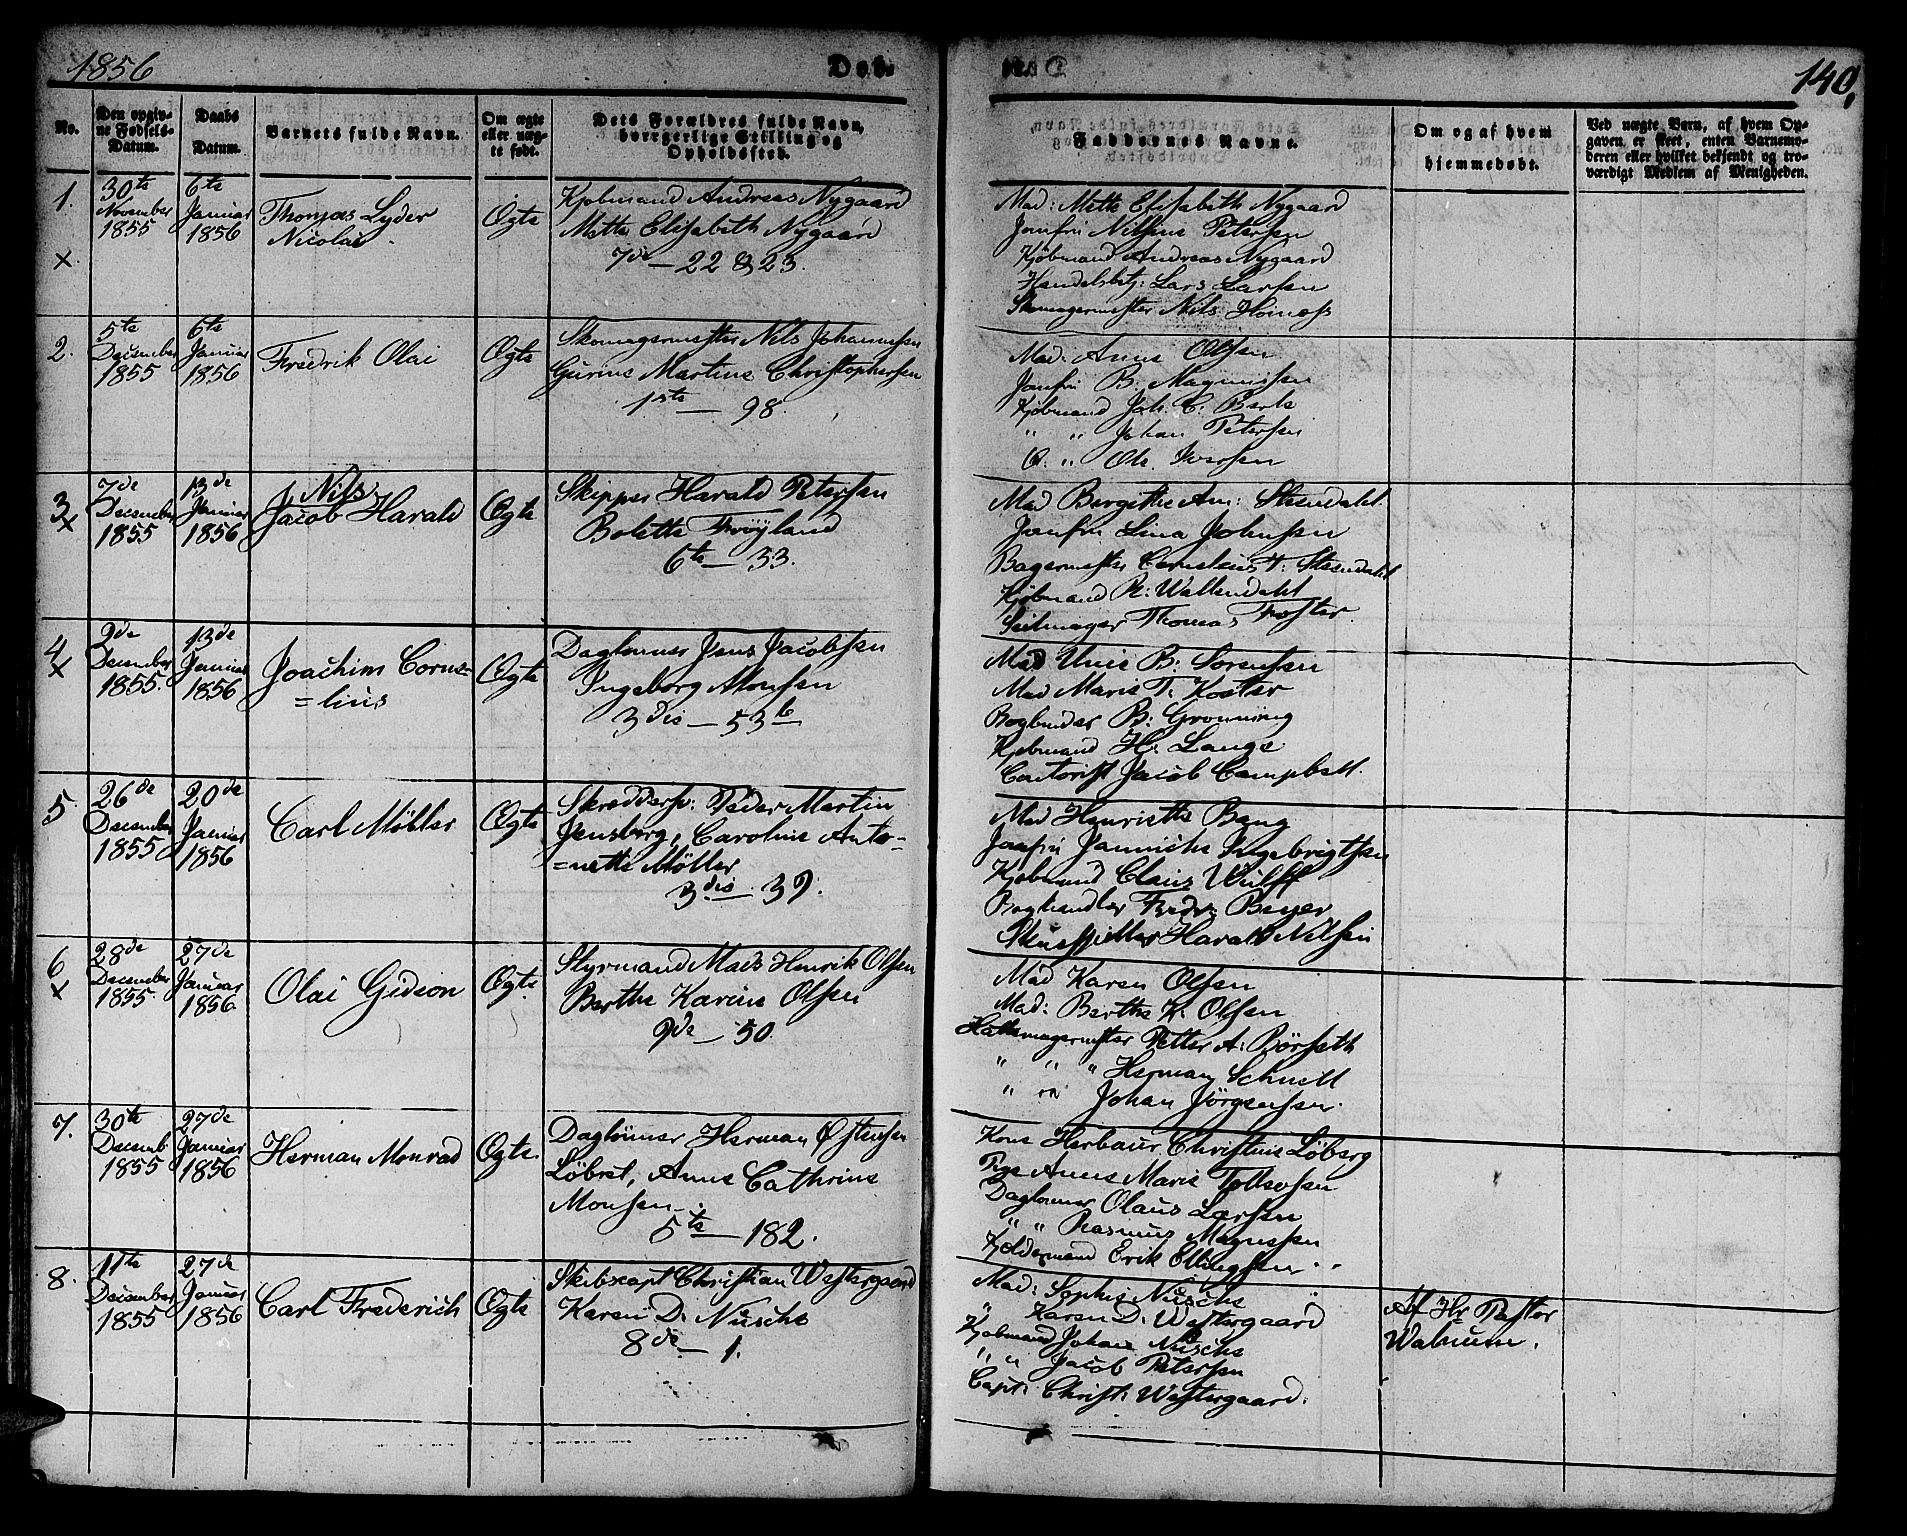 1856
Døb-
140.
No.
Den opgiv-
ne Fødsels-
Datum.
Daabs
Datum.
Barnets fulde Navn.
Om ægte
eller uæg-
te født.
Dets Forældres fulde Navn,
borgerlige Stilling og
Opholdssted.
Faddernes Navne.
Om og af hvem
hjemmedøbt.
Ved uægte Barn, af hvem Op-
gaven er skeet, enten Barnemo-
deren eller hvilket bekjendt og tro-
værdigt Medlem af Menigheden.
1.
×
30te
November
1855
6te
Januar
1856
Thomas Lyder
Nicolai
Ægte
Kjøbmand Andreas Nygaard
Mette Elisabeth Nygaard
7de — 22 & 23.
Mad: Mette Elisabeth Nygaard
Jomfru Nilsine Petersen
Kjøbmand Andreas Nygaard
Handelsbetj: Lars Larsen
Skomagermester Nils
2.
5te
December
1855
6te
Januar
1856
Fredrik Olai
Ægte
Skomagermester Nils Johannesen
Gurine Martine Christophersen
1ste — 98.
Mad: Anne Olsen
Jomfru B. Magnussen
Kjøbmand Joh. C.
" " Johan Petersen
" Ole Iversen
3
×
7de
December
1855
13de
Januar
1856
Nils
Jacob Harald
Ægte
Skipper Harald Petersen
Bolette Frøyland
6te — 33.
Mad Bergithe Am: Steendahl.
Jomfru Lina Johnsen
Bagermester Cornelius T: Steendahl
Kjøbmand R: Wallendahl
Seilmager Thomas Foster.
4
×
9de
December
1855.
13de
Januar
1856
Joachim Corne=
=lius
Ægte
Daglønner Jens Jacobsen
Ingeborg Monsen
3die — 53 b
Mad Unie B: Sørensen
Mad Marie T. Koster
Bogbinder B: Grønning
Kjøbmand H. Lange
Contorist Jacob Campbell.
5
26de
December
1855
20de
Januar
1856
Carl Möller
Ægte
Skreddersv: Peder Martin
Jensberg, Caroline Anto=
=nette Møller
3die — 39.
Mad Henriette Bang
Jomfru Jannicke Ingebrigtsen
Kjøbmand Claus Wulff
Boghandler Fredr: Beyer
Skuespiller Harald Nilsen
6
×
28de
December
1855.
27de
Januar
1856
Olai Gideon
Ægte.
Styrmand Mads Henrik Olsen
Berthe Karine Olsen
9de — 50.
Mad Karen Olsen
Mad: Berthe K. Olsen
Hattemagermester Petter A: Börseth
" " " Herman Schnell
" " Johan Jörgensen.
7.
30te
Decemb
1855
27de
Januar
1856
Herman Monrad
Ægte.
Daglønner Herman Østensen
Løbret, Anne Cathrine
Monsen.
5te — 182.
Kone Herbaur Christine Löberg
Pige Anne Marie Tollefsen
Daglønner Olaus Larsen
" " Rasmus Magnussen
Kjeldermand Erik Ellingsen
8.
11te
December
1855
27de
Januar
1856
Carl Frederich
Ægte
Skibscapt Christian Westergaard
Karen D. Nusche
8de — 1.
Mad: Sophie Nusche
" Karen D. Westergaard
Kjøbmand Johan Nusche
" " Jacob Petersen
Capt: Christ: Westergaard.
Af Hr Pastor
Walnum.